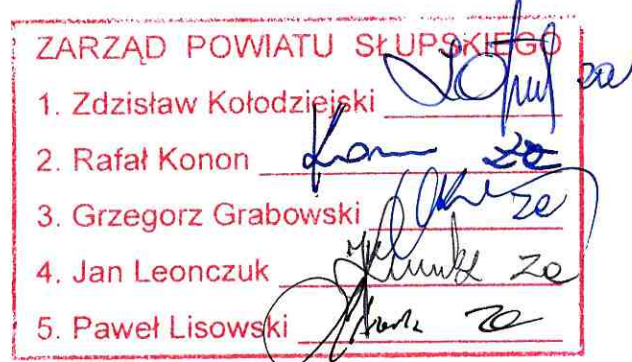 ZARZĄD POWIATU SŁUPSKIEGO
1. Zdzisław Kołodziejski za
2. Rafał Konon za
3. Grzegorz Grabowski za
4. Jan Leonczuk za
5. Paweł Lisowski za